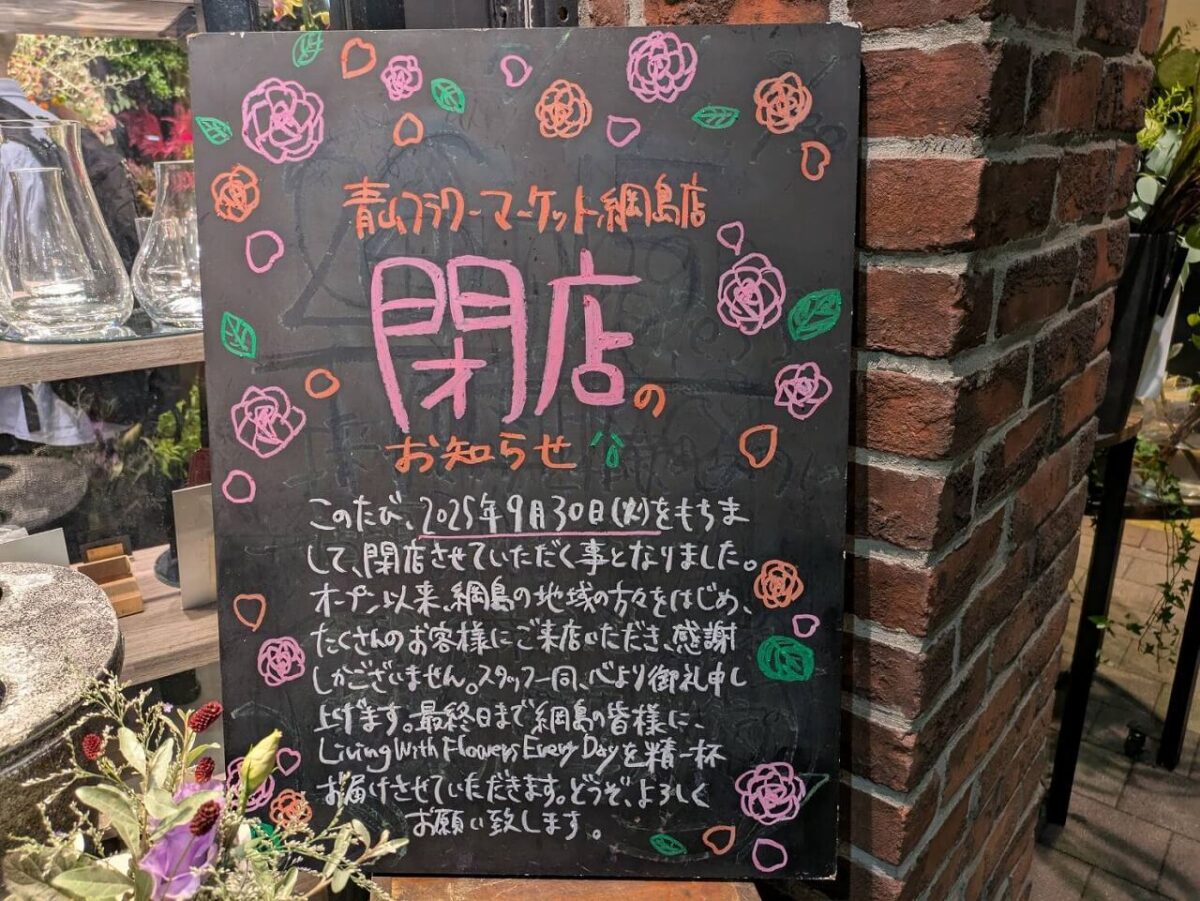 青山フラワーマーケット綱島店
閉店の
お知らせ
このたび、2025年9月30日(火)をもちま
して、閉店させていただく事となりました。
オープン以来、綱島の地域の方々をはじめ、
たくさんのお客様にご来店いただき、感謝
しかございません。スタッフ一同、心より御礼申し
上げます。最終日まで綱島の皆様に、
Living With Flowers Every Dayを精一杯
お届けさせていただきます。どうぞ、よろしく
お願い致します。